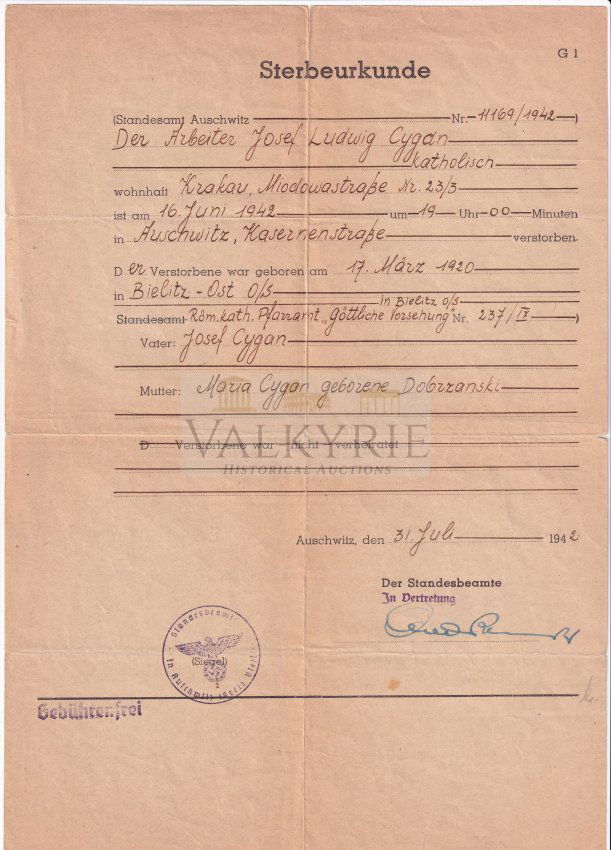 G 1
Sterbeurkunde
(Standesamt Auschwitz Nr. 11169/1942)
Der Arbeiter Josef Ludwig Cygan
katholisch
wohnhaft Krakau, Miodowastraße Nr. 23/3
ist am 16. Juni 1942 um 19 Uhr 00 Minuten
in Auschwitz, Kasernenstraße verstorben
Der Verstorbene war geboren am 17. März 1920
in Bielitz-Ost O/S
in Bielitz O/S
Standesamt Röm. kath. Pfarramt „Göttliche Vorsehung“ Nr. 237/IX)
Vater: Josef Cygan
Mutter: Maria Cygan geborene Dobrzanski
D Verstorbene war nicht verheiratet
VALKYRIE
HISTORICAL AUCTIONS
Auschwitz, den 31. Juli 1942
Der Standesbeamte
In Vertretung
Standesbeamte
(Siegel)
in Auschwitz (Kreis
Gebührenfrei